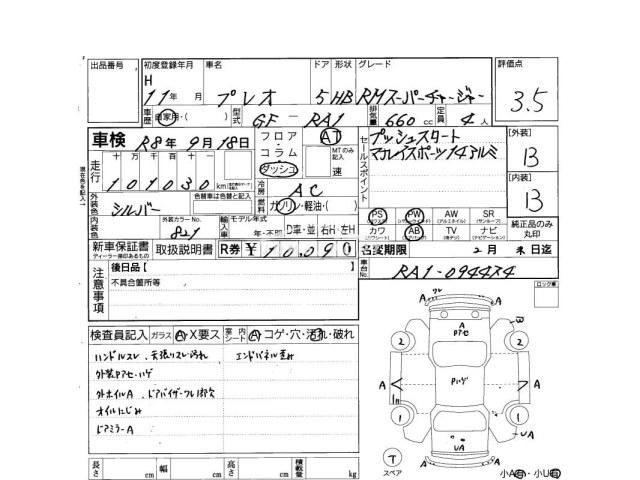 出品番号 初度登録年月 車名 ドア 形状 グレード 評価点
H 11年 月 プレオ 5 HB RMスーパーチャージャー 3.5
車歴 自家用・( ) 型式 GF－RA1 排気量 660 cc 定員 4 人
車検 R8年 9月 18日 フロア・コラム・ダッシュ AT セールスポイント プッシュスタート [外装] 13
MTのみ記入 速 マルレイスポーツ14アルミ
走行 十 万 千 百 十 [内装] 13
1 0 1 0 3 0 km 冷房 AC
色替車は色替と記入 燃料 ガソリン・軽油・( )
外装色 シルバー PS PW AW SR 純正品のみ丸印
外装カラーNo. 821 輸入車 モデル年式 カワ AB TV ナビ
内装色 年・不明 D車・並 右H・左H
新車保証書 取扱説明書 R券 ¥10,090 名変期限 2月 末日迄
ディーラー捺印あるもの
車台No. RA1-094474
注意事項 後日品【 】 ロック車
不具合箇所等
検査員記入 ガラス A・X要ス 室内シート A・コゲ・穴・汚れ・破れ
ハンドルスレ、天張リスレ汚れ エンドパネル歪み
外装Pアセ・ハゲ
外ホイルA、ドアバイザーワレ
オイルにじみ
ドアミラーA
長さ cm 幅 cm 高さ cm 積載量 kg
A ワレ A
A Pアセ B
2 2
A Pハゲ A
1 1
UA UA
T スペア A A
小A有・小U有